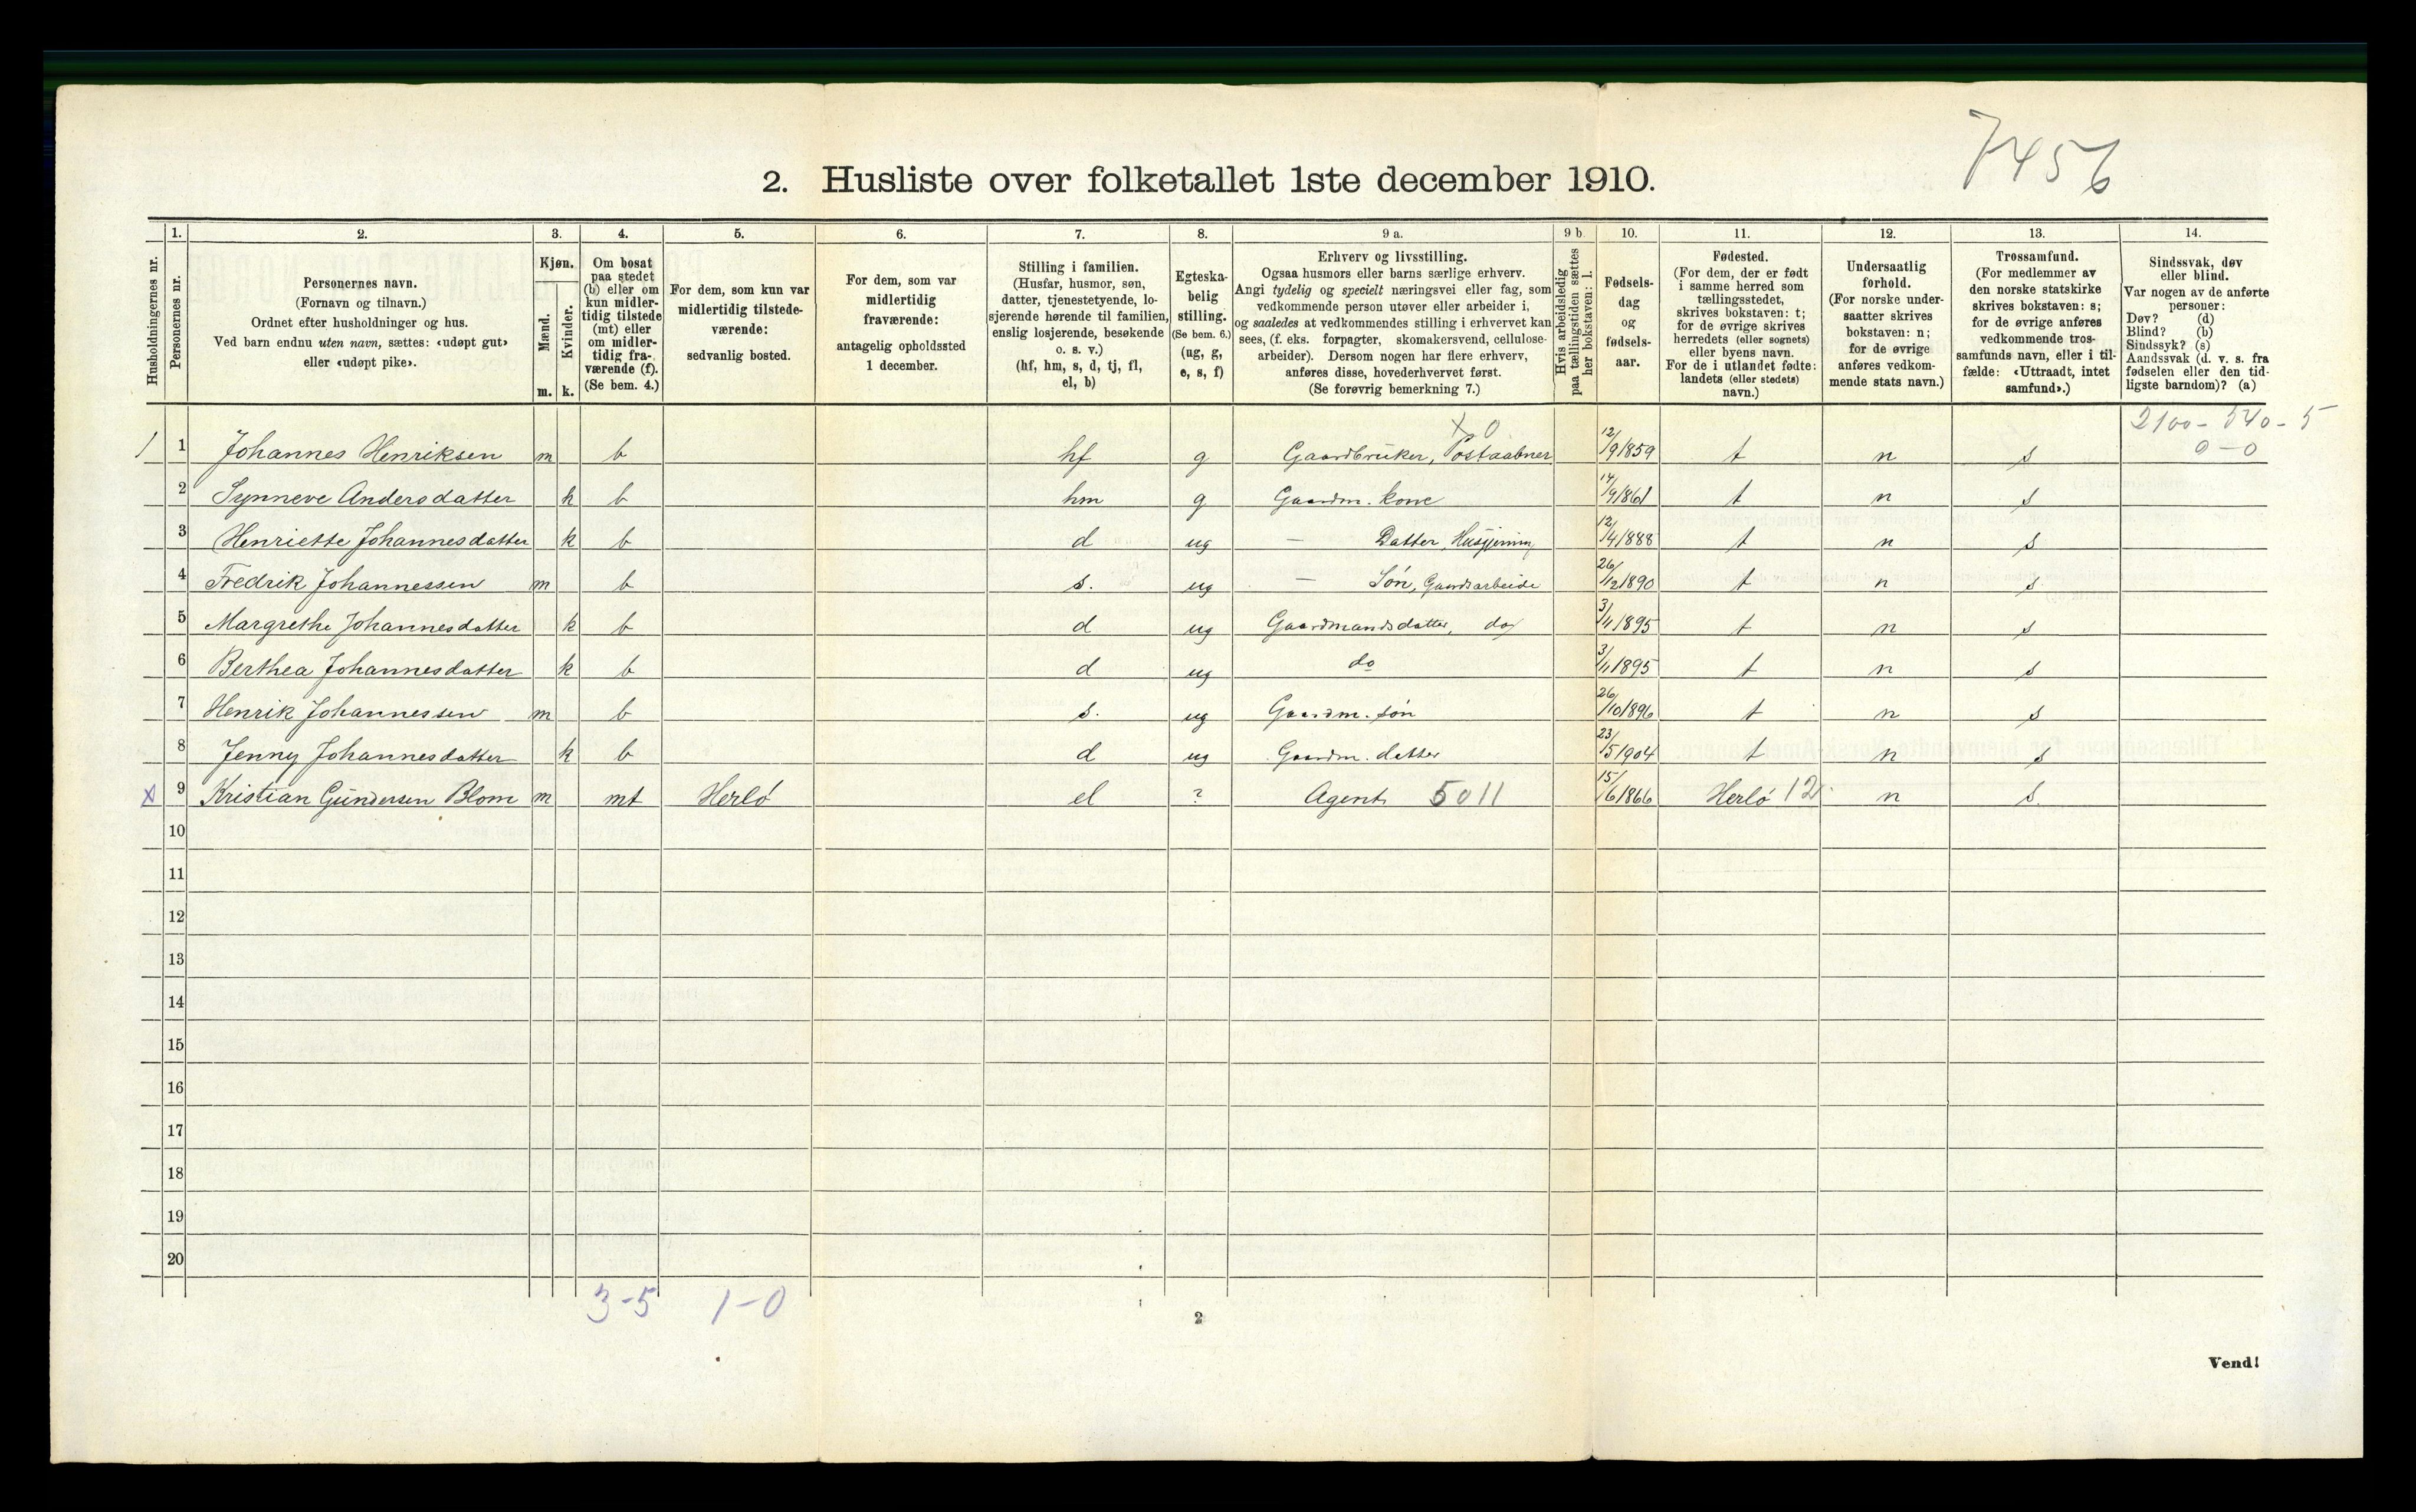 7456
2. Husliste over folketallet 1ste december 1910.
1. 2. 3. 4. 5. 6. 7. 8. 9 a. 9 b 10. 11. 12. 13. 14.
Husholdningernes nr.
Personernes nr.
Personernes navn.
(Fornavn og tilnavn.)
Ordnet efter husholdninger og hus.
Ved barn endnu uten navn, sættes: «udøpt gut»
eller «udøpt pike».
Kjøn.
Mænd.
Kvinder.
m. k.
Om bosat
paa stedet
(b) eller om
kun midler-
tidig tilstede
(mt) eller
om midler-
tidig fra-
værende (f).
(Se bem. 4.)
For dem, som kun var
midlertidig tilstede-
værende:
sedvanlig bosted.
For dem, som var
midlertidig
fraværende:
antagelig opholdssted
1 december.
Stilling i familien.
(Husfar, husmor, søn,
datter, tjenestetyende, lo-
sjerende hørende til familien,
enslig losjerende, besøkende
o. s. v.)
(hf, hm, s, d, tj, fl,
el, b)
Egteska-
belig
stilling.
(Se bem. 6.)
(ug, g,
e, s, f)
Erhverv og livsstilling.
Ogsaa husmors eller barns særlige erhverv.
Angi tydelig og specielt næringsvei eller fag, som
vedkommende person utøver eller arbeider i,
og saaledes at vedkommendes stilling i erhvervet kan
sees, (f. eks. forpagter, skomakersvend, cellulose-
arbeider). Dersom nogen har flere erhverv,
anføres disse, hovederhvervet først.
(Se forøvrig bemerkning 7.)
Hvis arbeidsledig
paa tællingstiden sættes
her bokstaven: l.
Fødsels-
dag
og
fødsels-
aar.
Fødested.
(For dem, der er født
i samme herred som
tællingsstedet,
skrives bokstaven: t;
for de øvrige skrives
herredets (eller sognets)
eller byens navn.
For de i utlandet fødte:
landets (eller stedets)
navn.)
Undersaatlig
forhold.
(For norske under-
saatter skrives
bokstaven: n;
for de øvrige
anføres vedkom-
mende stats navn.)
Trossamfund.
(For medlemmer av
den norske statskirke
skrives bokstaven: s;
for de øvrige anføres
vedkommende tros-
samfunds navn, eller i til-
fælde: «Uttraadt, intet
samfund».)
Sindssvak, døv
eller blind.
Var nogen av de anførte
personer:
Døv? (d)
Blind? (b)
Sindssyk? (s)
Aandssvak (d. v. s. fra
fødselen eller den tid-
ligste barndom)? (a)
X 0 2100 - 540 - 5
1 1 Johannes Henriksen m b hf g Gaardbruker, Postaabner 12/9 1859 t n s 0-0
2 Synneve Andersdatter k b hm g Gaardm. kone 14/9 1861 t n s
3 Henriette Johannesdatter k b d ug — Datter, Husgjerning 12/4 1888 t n s
4 Fredrik Johannessen m b s. ug — Søn, Gaardsarbeide 26/12 1890 t n s
5 Margrethe Johannesdatter k b d ug Gaardmandsdatter, do 3/11 1895 t n s
6 Berthea Johannesdatter k b d ug do 3/11 1895 t n s
7 Henrik Johannessen m b s. ug Gaardm. søn 26/10 1896 t n s
8 Jenny Johannesdatter k b d ug Gaardm. datter 23/5 1904 t n s
X 9 Kristian Gundersen Blom m mt Herlö el ? Agent 5011 15/6 1866 Herlö 12 n s
10
11
12
13
14
15
16
17
18
19
20
3-5 1-0
2
Vend!